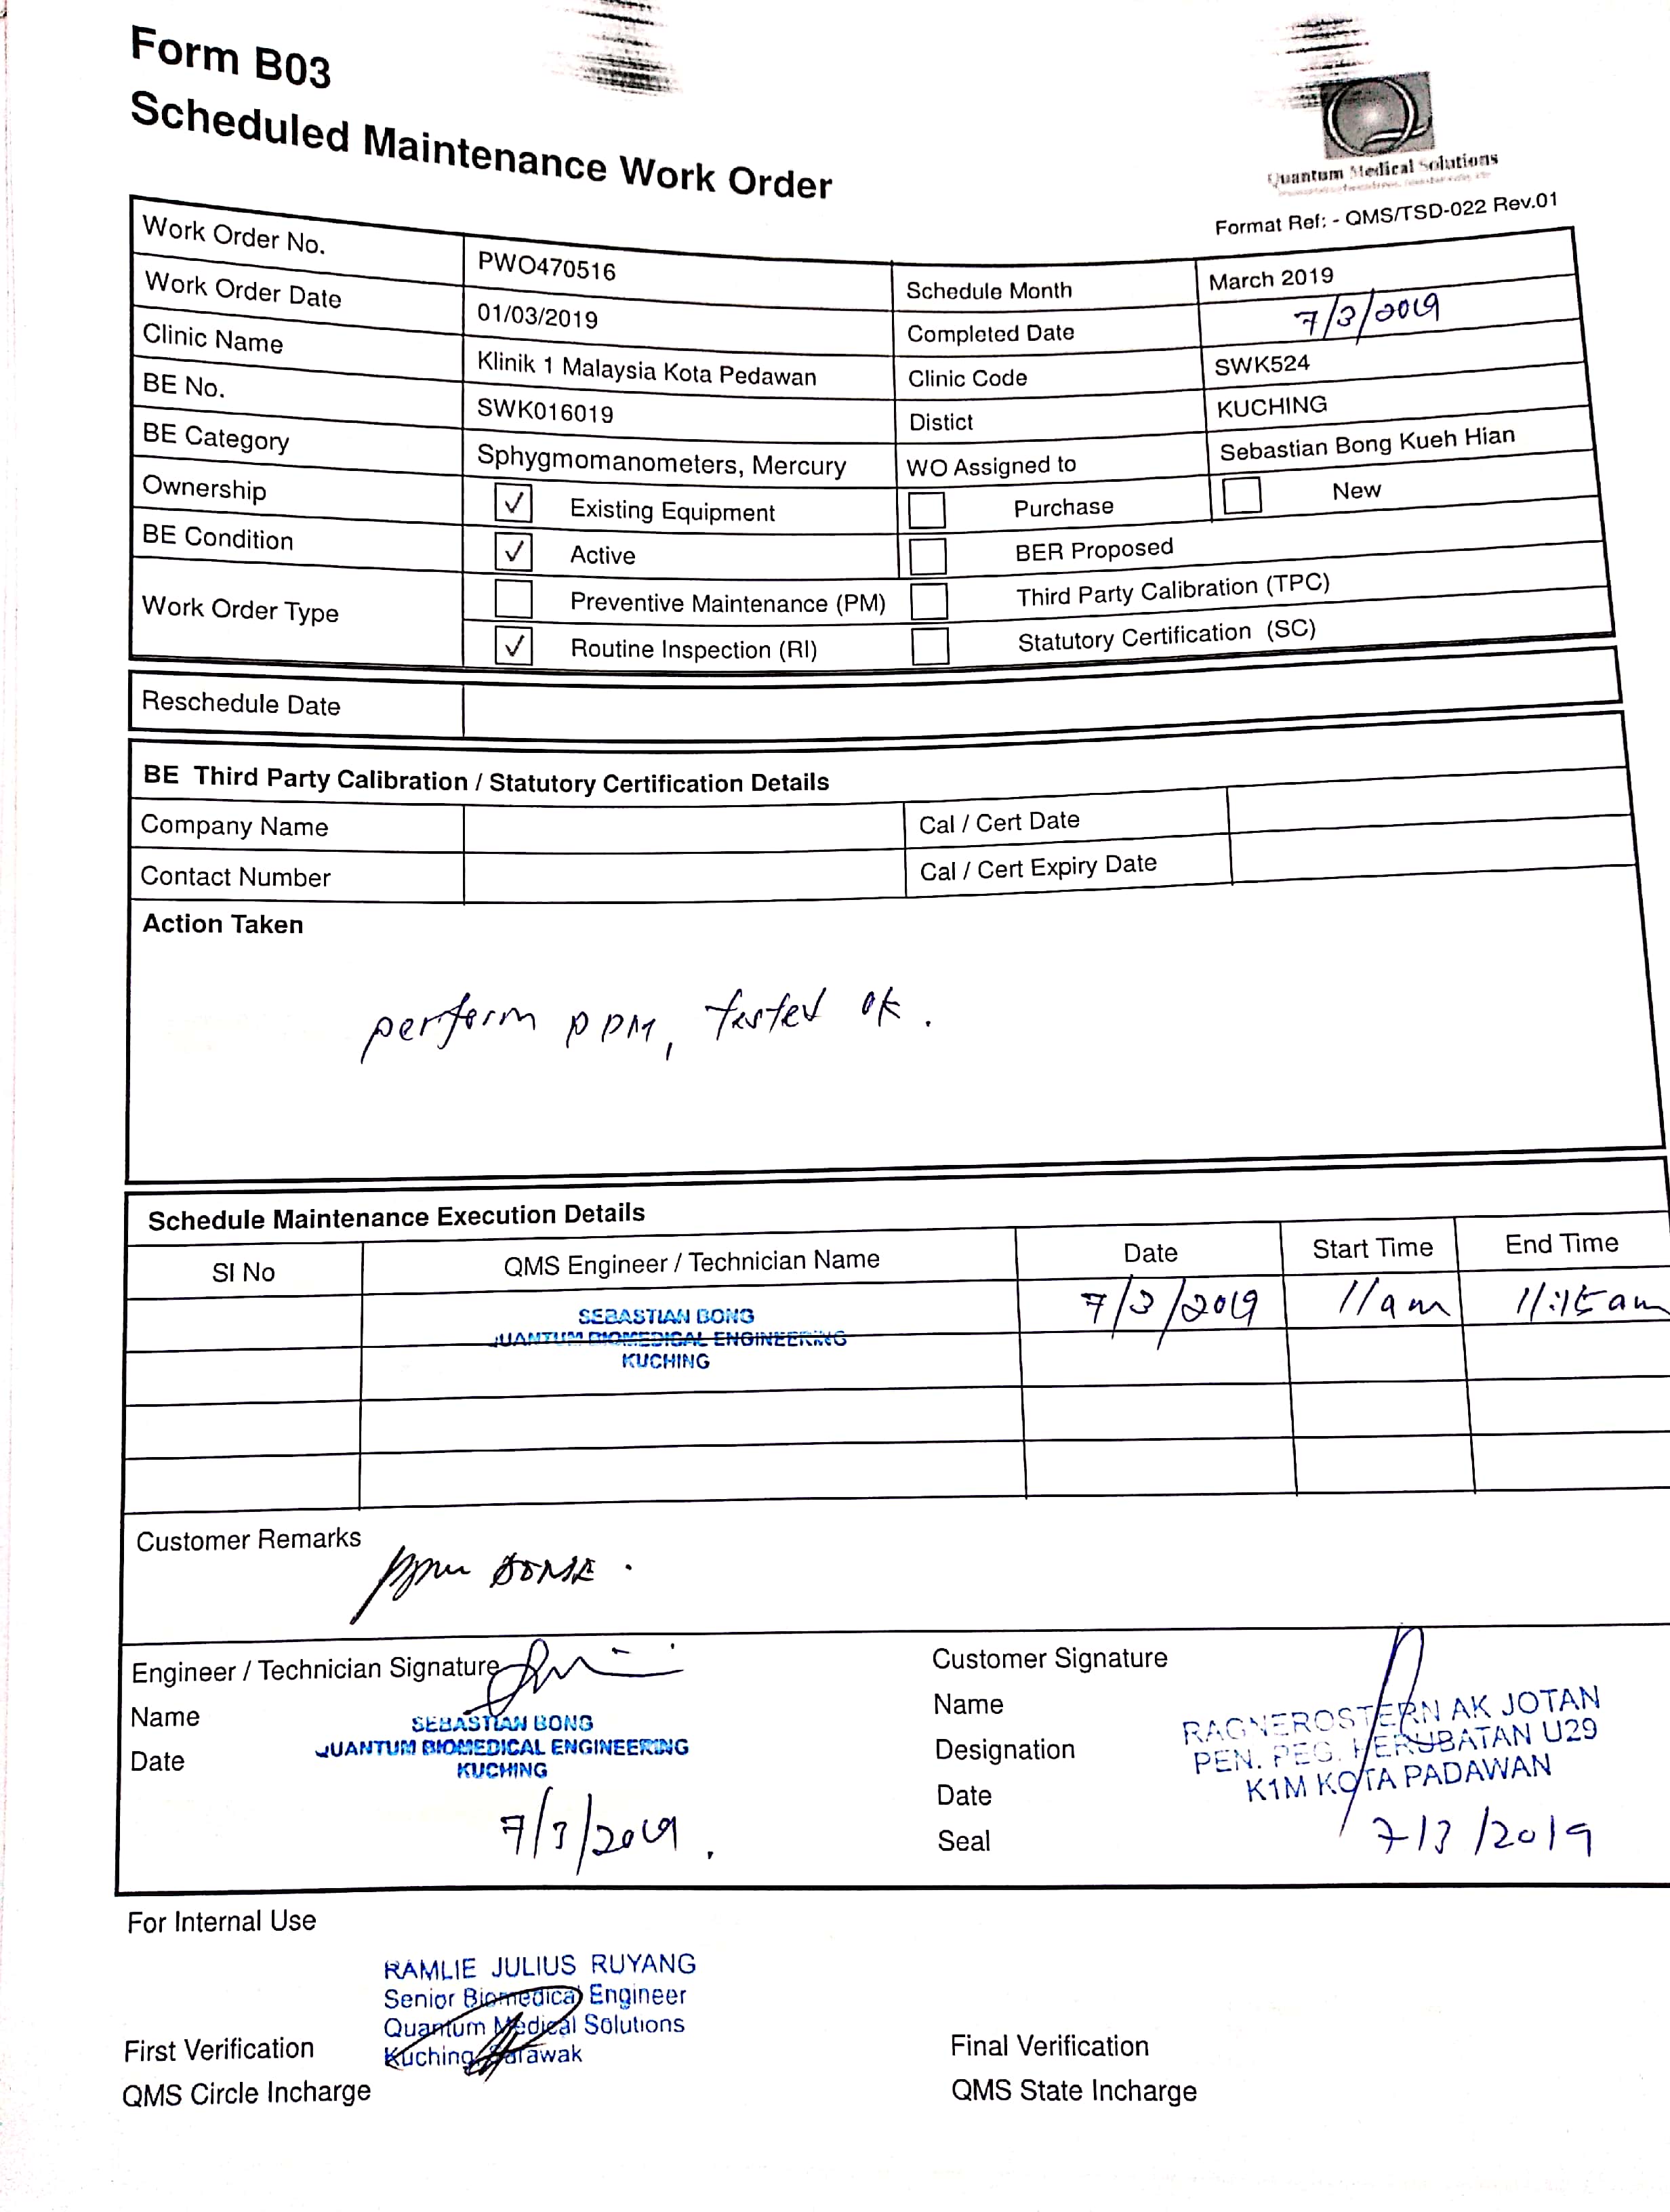 Form B03
Scheduled Maintenance Work Order
Quantum Medical Solutions
Format Ref: - QMS/TSD-022 Rev.01
Work Order No. PWO470516 Schedule Month March 2019
Work Order Date 01/03/2019 Completed Date 7/3/2019
Clinic Name Klinik 1 Malaysia Kota Pedawan Clinic Code SWK524
BE No. SWK016019 Distict KUCHING
BE Category Sphygmomanometers, Mercury WO Assigned to Sebastian Bong Kueh Hian
Ownership ✓ Existing Equipment Purchase New
BE Condition ✓ Active BER Proposed
Work Order Type Preventive Maintenance (PM) Third Party Calibration (TPC)
✓ Routine Inspection (RI) Statutory Certification (SC)
Reschedule Date
BE Third Party Calibration / Statutory Certification Details
Company Name Cal / Cert Date
Contact Number Cal / Cert Expiry Date
Action Taken
perform PPM, tested ok.
Schedule Maintenance Execution Details
SI No QMS Engineer / Technician Name Date Start Time End Time
SEBASTIAN BONG 7/3/2019 11am 11:15am
QUANTUM BIOMEDICAL ENGINEERING
KUCHING
Customer Remarks
ppm DONE.
Engineer / Technician Signature
Name
Date
SEBASTIAN BONG
QUANTUM BIOMEDICAL ENGINEERING
KUCHING
7/3/2019.
Customer Signature
Name
Designation
Date
Seal
RAGNEROSTERN AK JOTAN
PEN. PEG. PERUBATAN U29
K1M KOTA PADAWAN
7/3/2019
For Internal Use
RAMLIE JULIUS RUYANG
Senior Biomedical Engineer
Quantum Medical Solutions
Kuching, Sarawak
First Verification
QMS Circle Incharge
Final Verification
QMS State Incharge